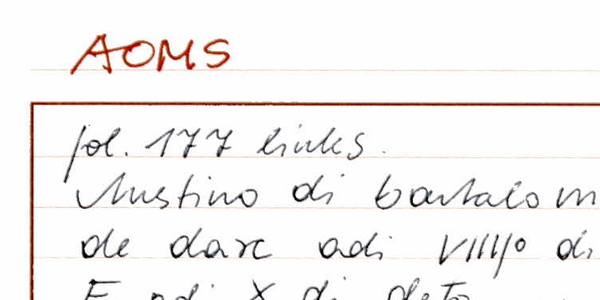 AOMS
fol. 177 links.
di bartalom
de dare adi VIIIIº di
F adi X di deto